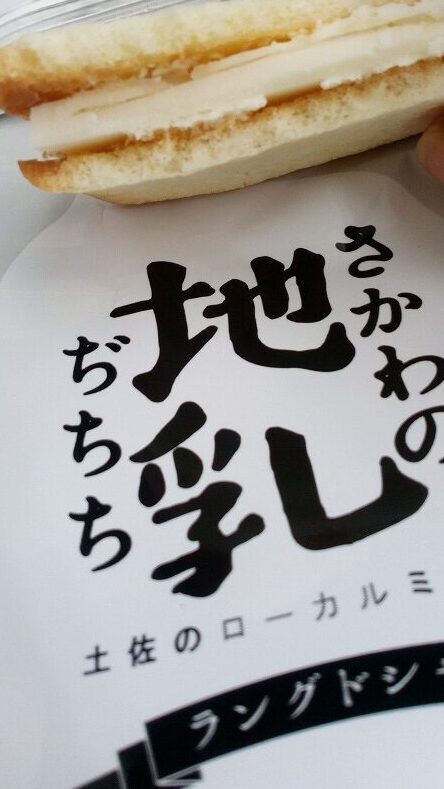 さかわの
地乳
ぢちち
土佐のローカルミ
ラングドシ